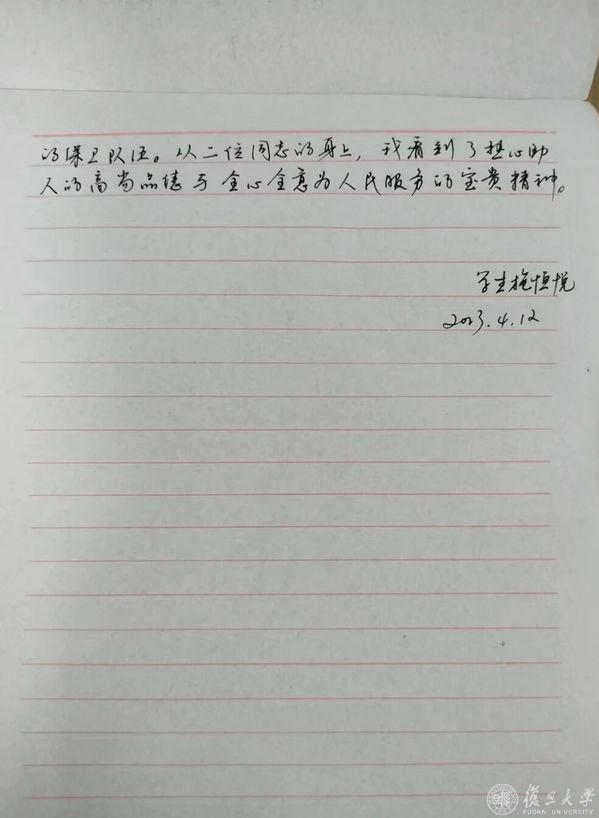 的保卫队伍。从二位同志的身上，我看到了热心助
人的高尚品德与全心全意为人民服务的宝贵精神。
学生施恒悦
2023.4.12
復旦大學
FUDAN UNIVERSITY